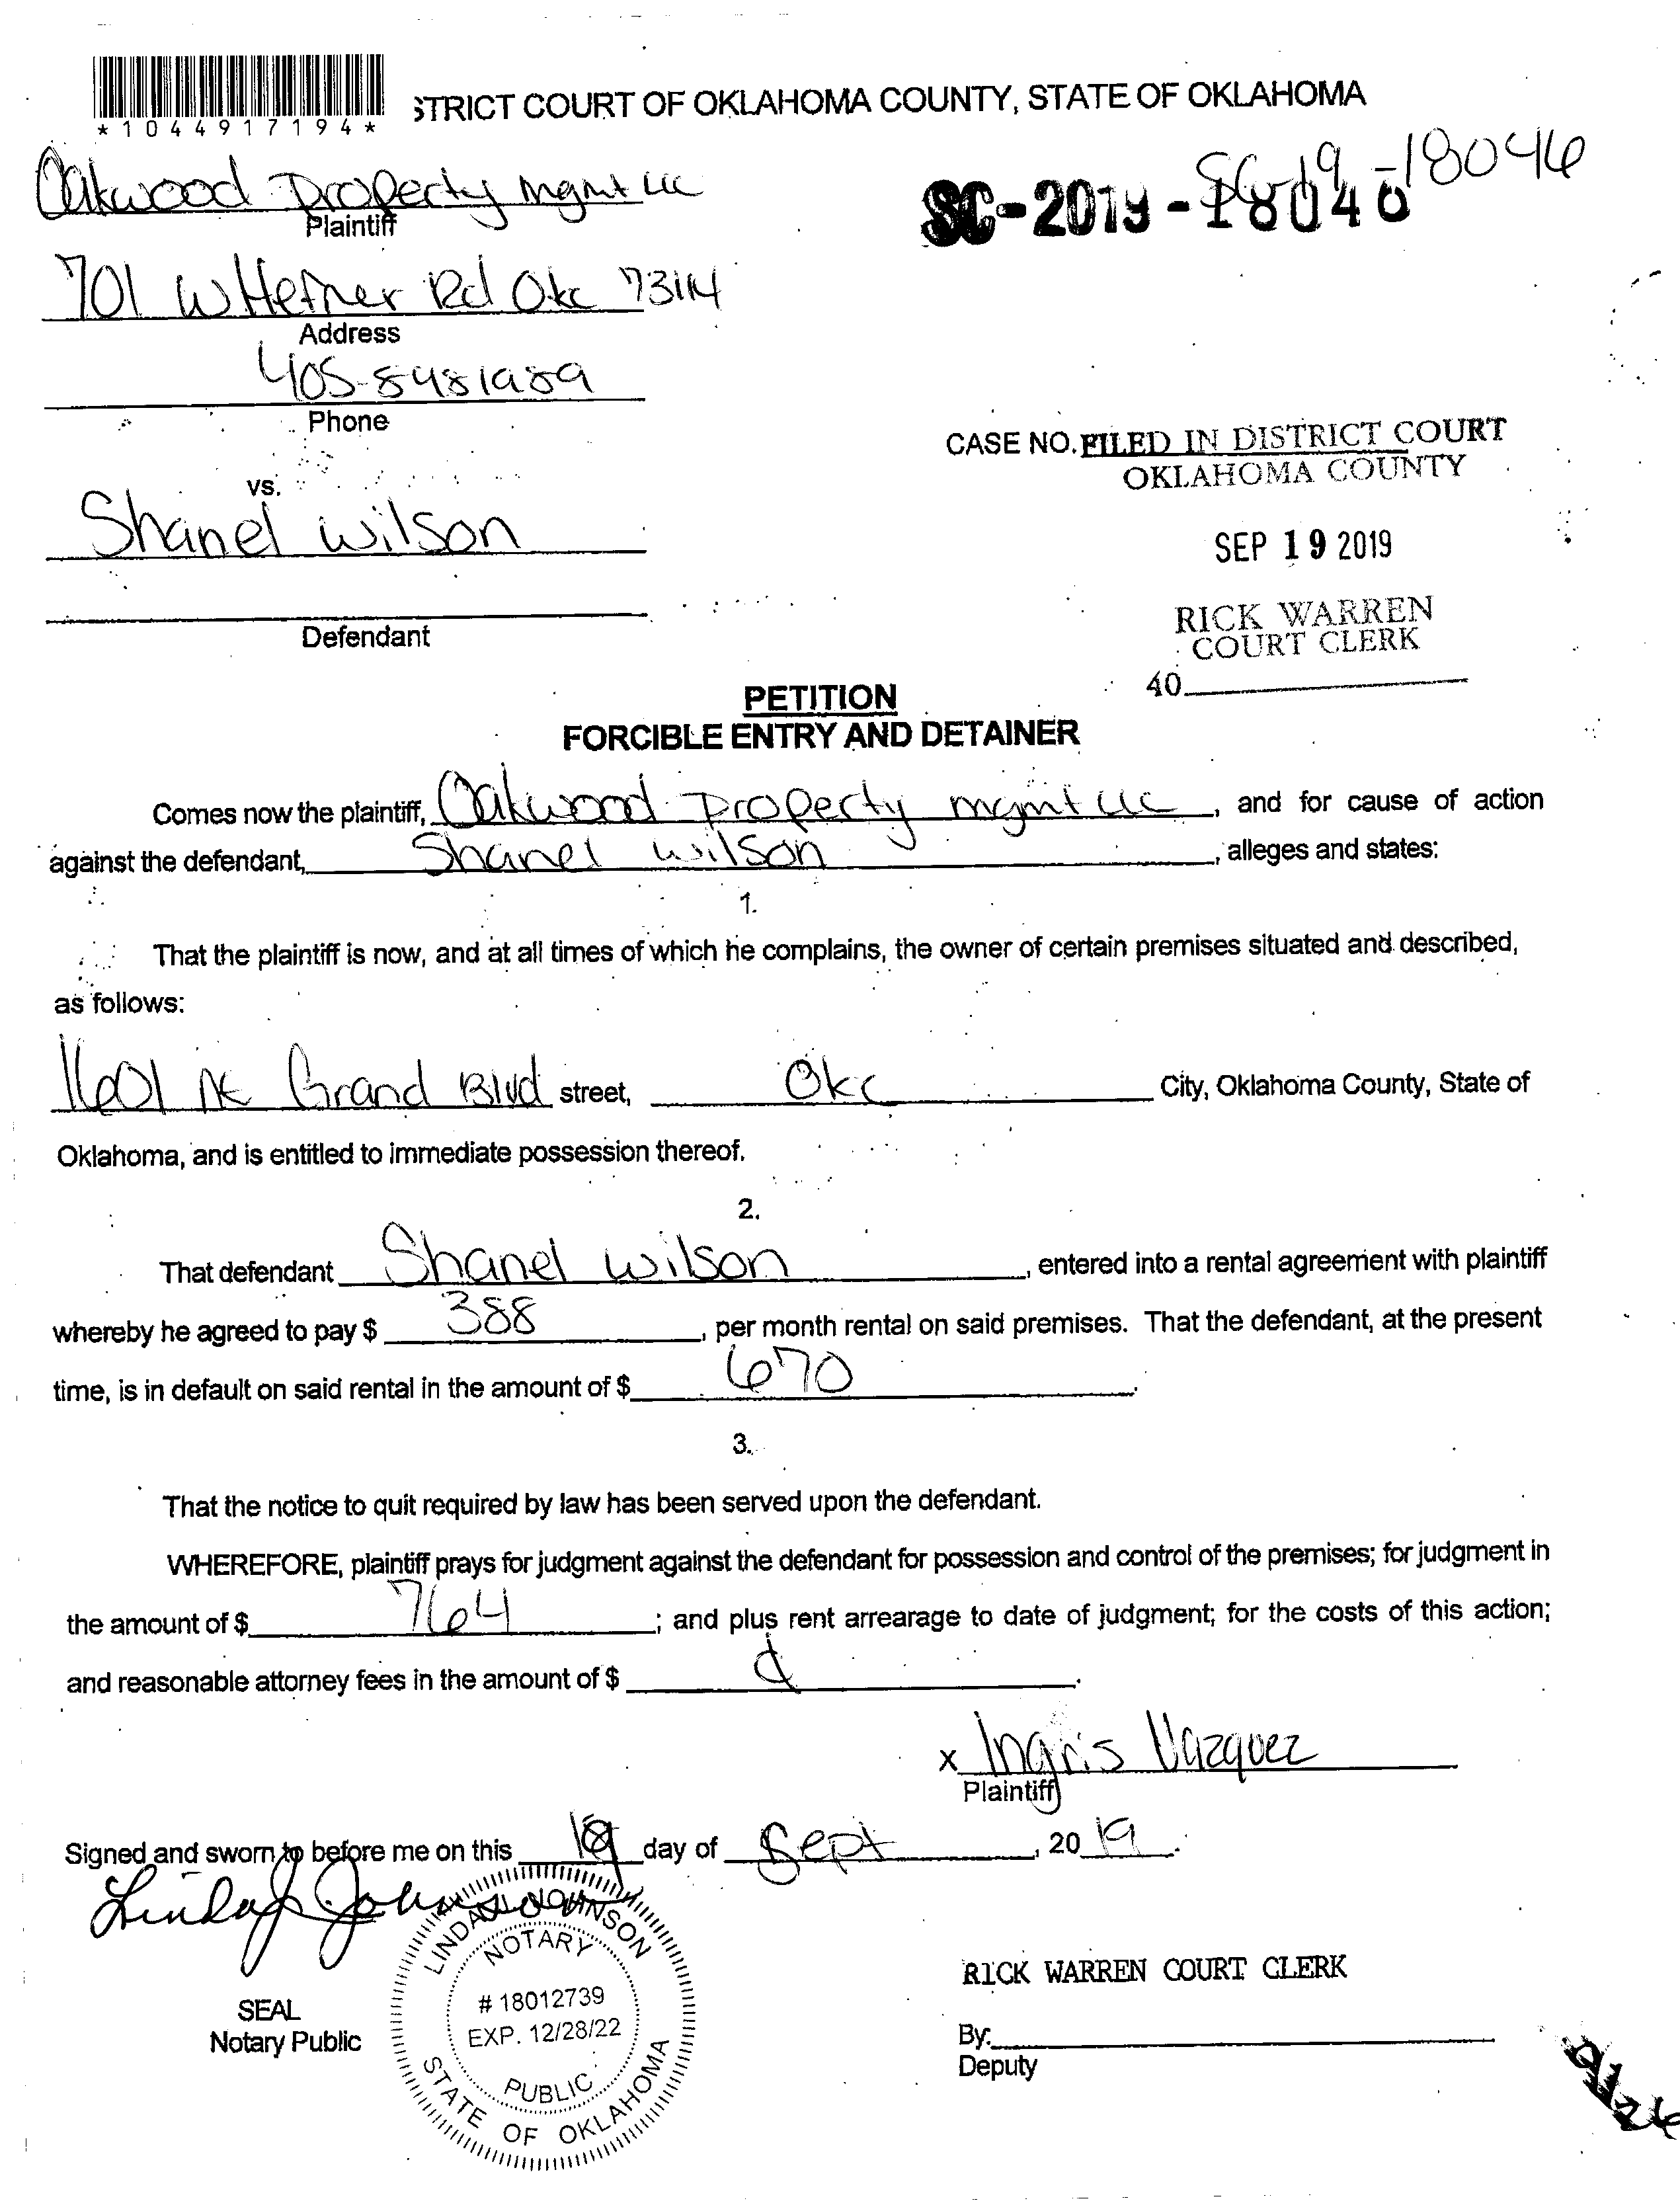 *1044917194*
STRICT COURT OF OKLAHOMA COUNTY, STATE OF OKLAHOMA
Oakwood Property mgmt LLC
Plaintiff
SC-19-18046
SC-2019-18046
701 W Hefner Rd Okc 73114
Address
405-8481989
Phone
CASE NO. FILED IN DISTRICT COURT
OKLAHOMA COUNTY
vs.
Shanel Wilson
SEP 19 2019
Defendant
RICK WARREN
COURT CLERK
40
PETITION
FORCIBLE ENTRY AND DETAINER
Comes now the plaintiff, Oakwood Property mgmt LLC, and for cause of action
against the defendant, Shanel Wilson, alleges and states:
1.
That the plaintiff is now, and at all times of which he complains, the owner of certain premises situated and described,
as follows:
1601 NE Grand Blvd street, Okc City, Oklahoma County, State of
Oklahoma, and is entitled to immediate possession thereof.
2.
That defendant Shanel Wilson, entered into a rental agreement with plaintiff
whereby he agreed to pay $ 388, per month rental on said premises. That the defendant, at the present
time, is in default on said rental in the amount of $ 670.
3.
That the notice to quit required by law has been served upon the defendant.
WHEREFORE, plaintiff prays for judgment against the defendant for possession and control of the premises; for judgment in
the amount of $ 764; and plus rent arrearage to date of judgment; for the costs of this action;
and reasonable attorney fees in the amount of $ .
x Ingris Vazquez
Plaintiff
Signed and sworn to before me on this 19 day of Sept, 20 19.
Linda J Johnson
LINDA J. JOHNSON
NOTARY
# 18012739
EXP. 12/28/22
PUBLIC
STATE OF OKLAHOMA
SEAL
Notary Public
RICK WARREN COURT CLERK
By:
Deputy